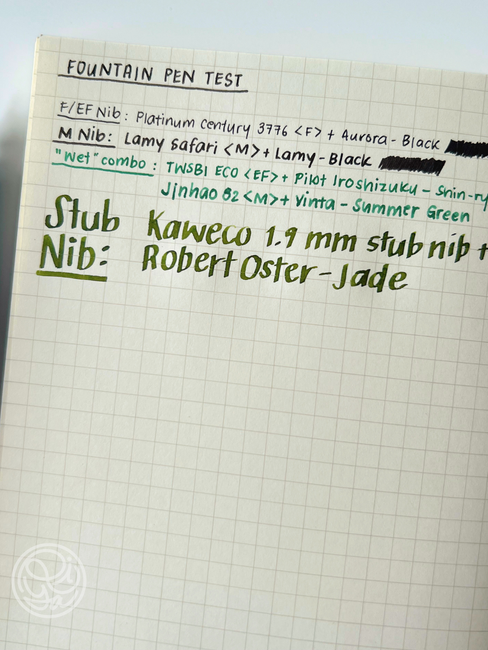 FOUNTAIN PEN TEST
F/EF Nib: Platinum Century 3776 <F> + Aurora - Black
M Nib: Lamy Safari <M> + Lamy - Black
"Wet" combo: TWSBI ECO <EF> + Pilot Iroshizuku - Shin-ry
Jinhao 82 <M> + Vinta - Summer Green
Stub Nib: Kaweco 1.9 mm stub nib +
Robert Oster - Jade